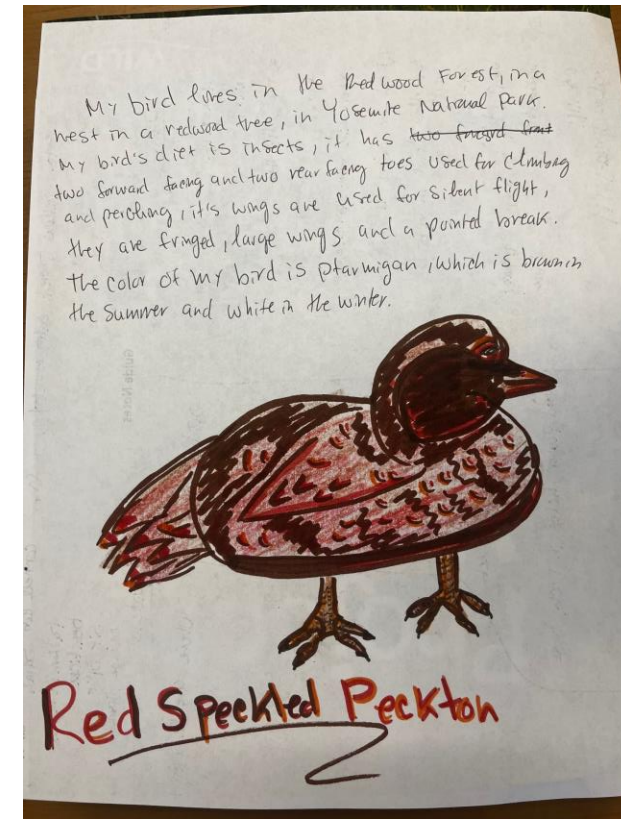 My bird lives in the Redwood Forest, in a
nest in a redwood tree, in Yosemite National Park.
My bird's diet is insects, it has two forward front
two forward facing and two rear facing toes used for climbing
and perching, it's wings are used for silent flight,
they are fringed, large wings and a pointed break.
the color of my bird is ptarmigan, which is brown in
the Summer and white in the winter.
Red Speckled Peckton